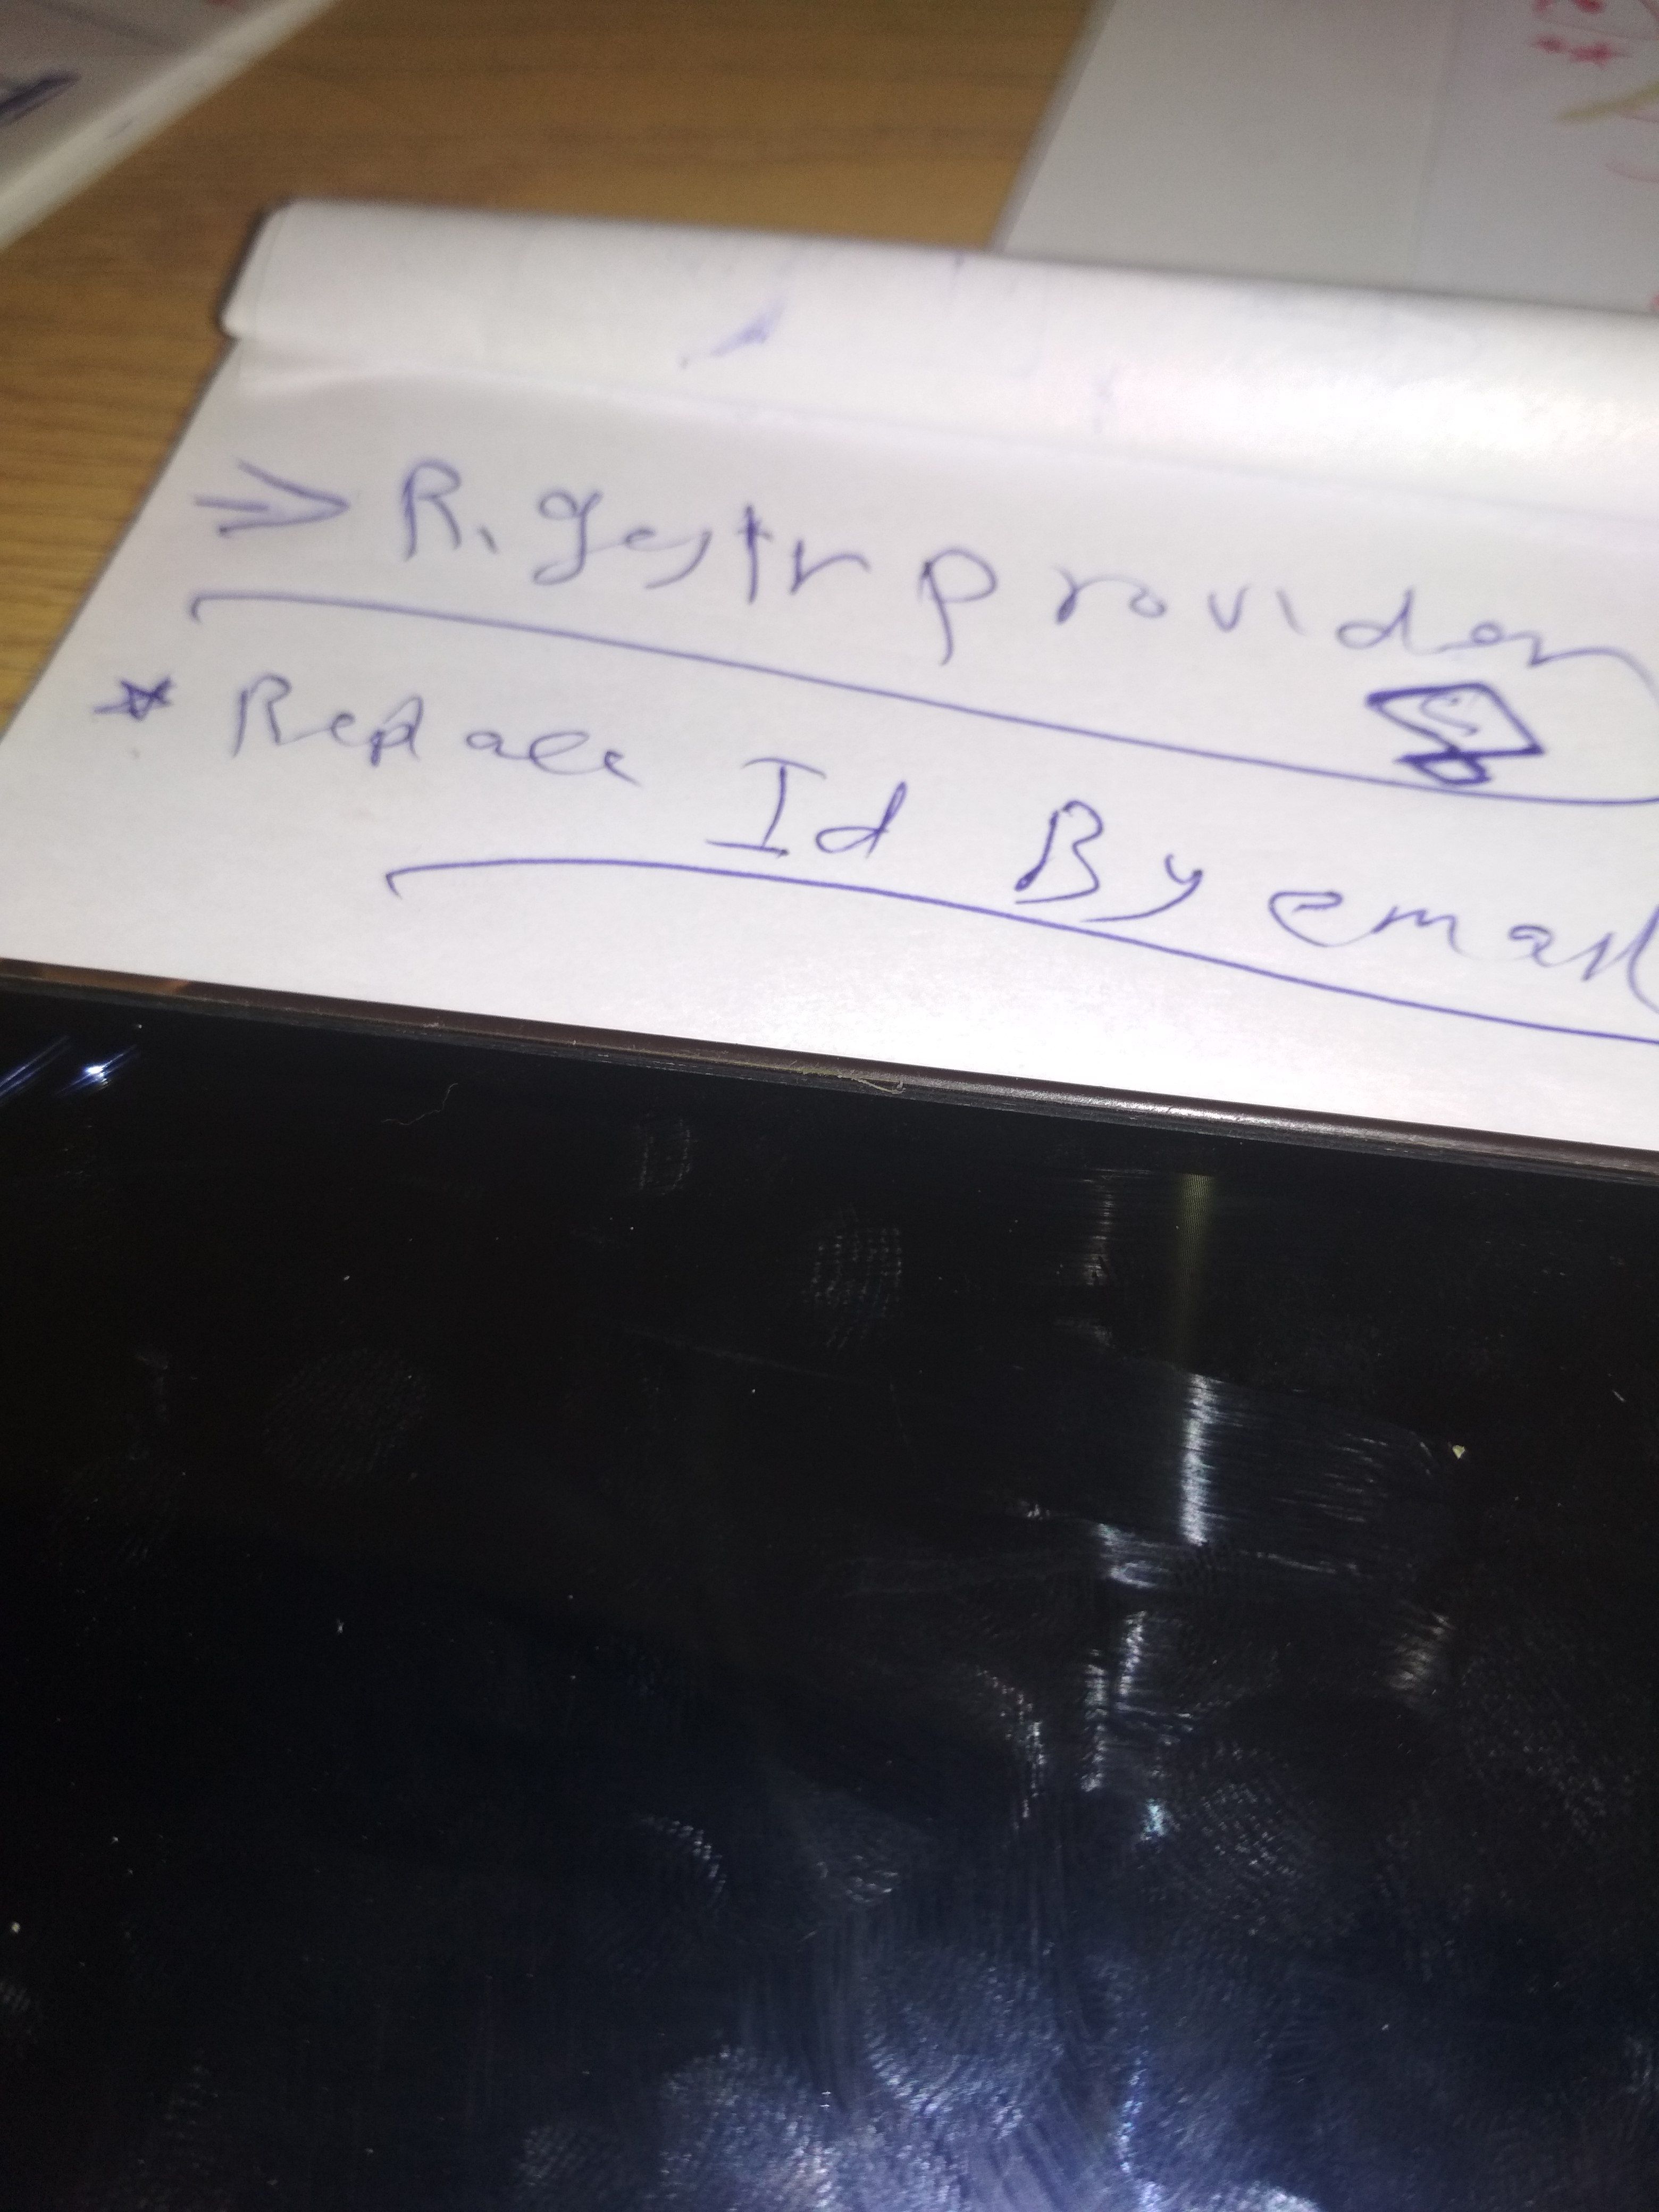 => Rigestr provider
* Replace Id By email